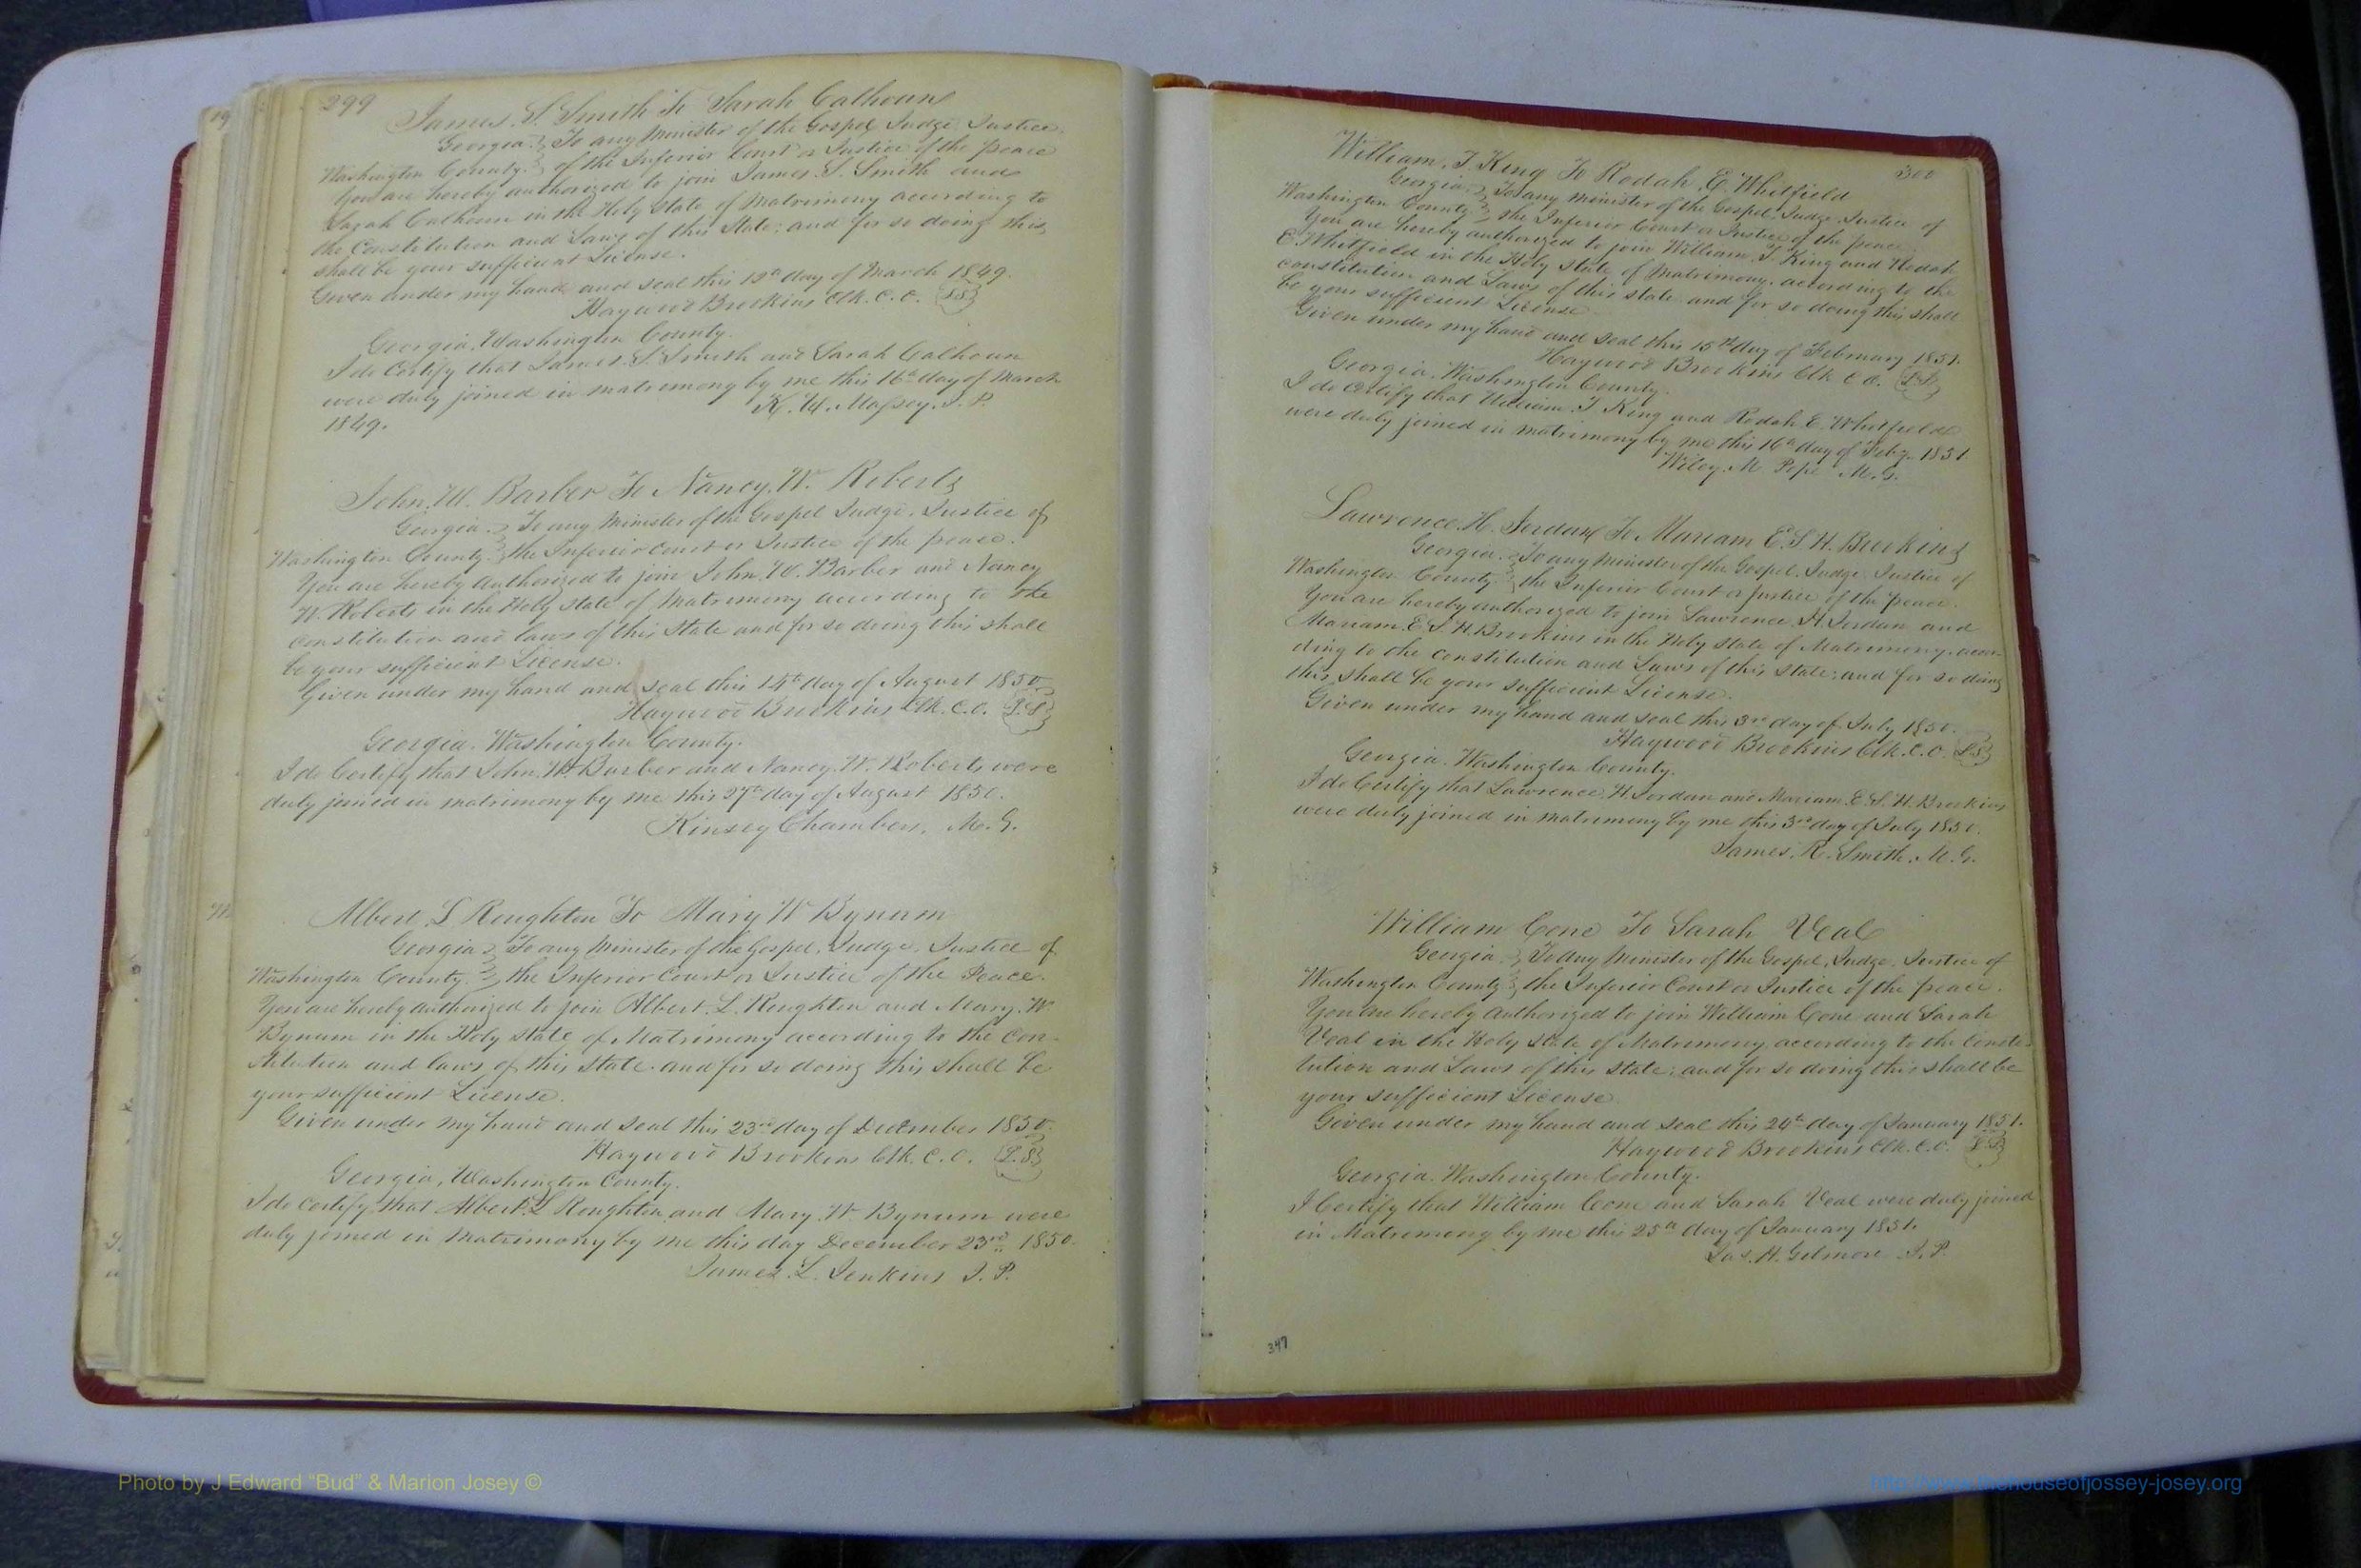 299
James. S. Smith To Sarah Calhoun
Georgia. To any Minister of the Gospel Judge Justice
Washington County. of the Inferior Court or Justice of the peace
You are hereby authorized to join James. S. Smith and
Sarah Calhoun in the Holy state of Matrimony according to
the Constitution and Laws of this State; and for so doing this
shall be your sufficient License.
Given under my hand and seal this 15th day of March 1849.
Haywood Brookins Clk. C. O. L.S.
Georgia, Washington County.
I do Certify that James. S. Smith and Sarah Calhoun
were duly joined in matrimony by me this 16th day of March
1849.
Massey. J. P.
John. W. Barber To Nancy. W. Roberts
Georgia. To any Minister of the Gospel Judge. Justice of
Washington County. the Inferior Court or Justice of the peace.
You are hereby authorized to join John. W. Barber and Nancy
W. Roberts in the Holy state of Matrimony according to the
constitution and laws of this State and for so doing this shall
be your sufficient License.
Given under my hand and seal this 14th day of August 1850.
Haywood Brookins Clk. C. O. L.S.
Georgia. Washington County.
I do Certify that John. W. Barber and Nancy. W. Roberts were
duly joined in matrimony by me this 27th day of August 1850.
Kinsey Chambers, M. G.
Albert. L Roughton To Mary W Bynum
Georgia To any Minister of the Gospel. Judge. Justice of
Washington County. the Inferior Court or Justice of the Peace.
You are hereby authorized to join Albert. L. Roughton and Mary. W.
Bynum in the Holy state of Matrimony according to the Con-
stitution and laws of this State. and for so doing this shall be
your sufficient License.
Given under my hand and seal this 23rd day of December 1850.
Haywood Brookins Clk. C. O. L.S.
Georgia, Washington County.
I do certify that Albert. L Roughton and Mary. W. Bynum were
duly joined in Matrimony by me this day December 23rd 1850.
James. L. Jenkins J. P.
300
William. T King To Rodah. E. Whitfield
Georgia. To any Minister of the Gospel. Judge. Justice of
Washington County. the Inferior Court or Justice of the peace.
You are hereby authorized to join William. T King and Rodah
E. Whitfield in the Holy state of Matrimony. according to the
constitution and Laws of this state and for so doing this shall
be your sufficient License.
Given under my hand and seal this 15th day of February 1851.
Haywood Brookins Clk C O. L.S.
Georgia. Washington County.
I do Certify that William. T King and Rodah E. Whitfield
were duly joined in matrimony by me this 16th day of Feby. 1851
Wiley. M. Pope M. G.
Lawrence. H. Jordan To Mariam E. S H. Brookins
Georgia. To any Minister of the Gospel. Judge. Justice of
Washington County the Inferior Court or Justice of the peace.
You are hereby authorized to join Lawrence. H. Jordan and
Mariam. E. S. H. Brookins in the Holy state of Matrimony. accor-
ding to the constitution and Laws of this State; and for so doing
this shall be your sufficient License.
Given under my hand and seal this 3rd day of July 1850.
Haywood Brookins Clk. C. O. L.S.
Georgia. Washington County.
I do Certify that Lawrence. H. Jordan and Mariam. E. S. H. Brookins
were duly joined in matrimony by me this 3rd day of July 1850.
James. R. Smith. M. G.
William Cone To Sarah Veal
Georgia. To any Minister of the Gospel, Judge. Justice of
Washington County the Inferior Court or Justice of the peace.
You are hereby authorized to join William Cone and Sarah
Veal in the Holy state of Matrimony according to the Consti-
tution and Laws of this State; and for so doing this shall be
your sufficient License.
Given under my hand and seal this 24th day of January 1851.
Haywood Brookins Clk. C. O. L.S.
Georgia. Washington County.
I Certify that William Cone and Sarah Veal were duly joined
in Matrimony by me this 25th day of January 1851.
Jas. H. Gilmore J. P.
347
Photo by J Edward “Bud” & Marion Josey ©
http://www.thehouseofjossey-josey.org